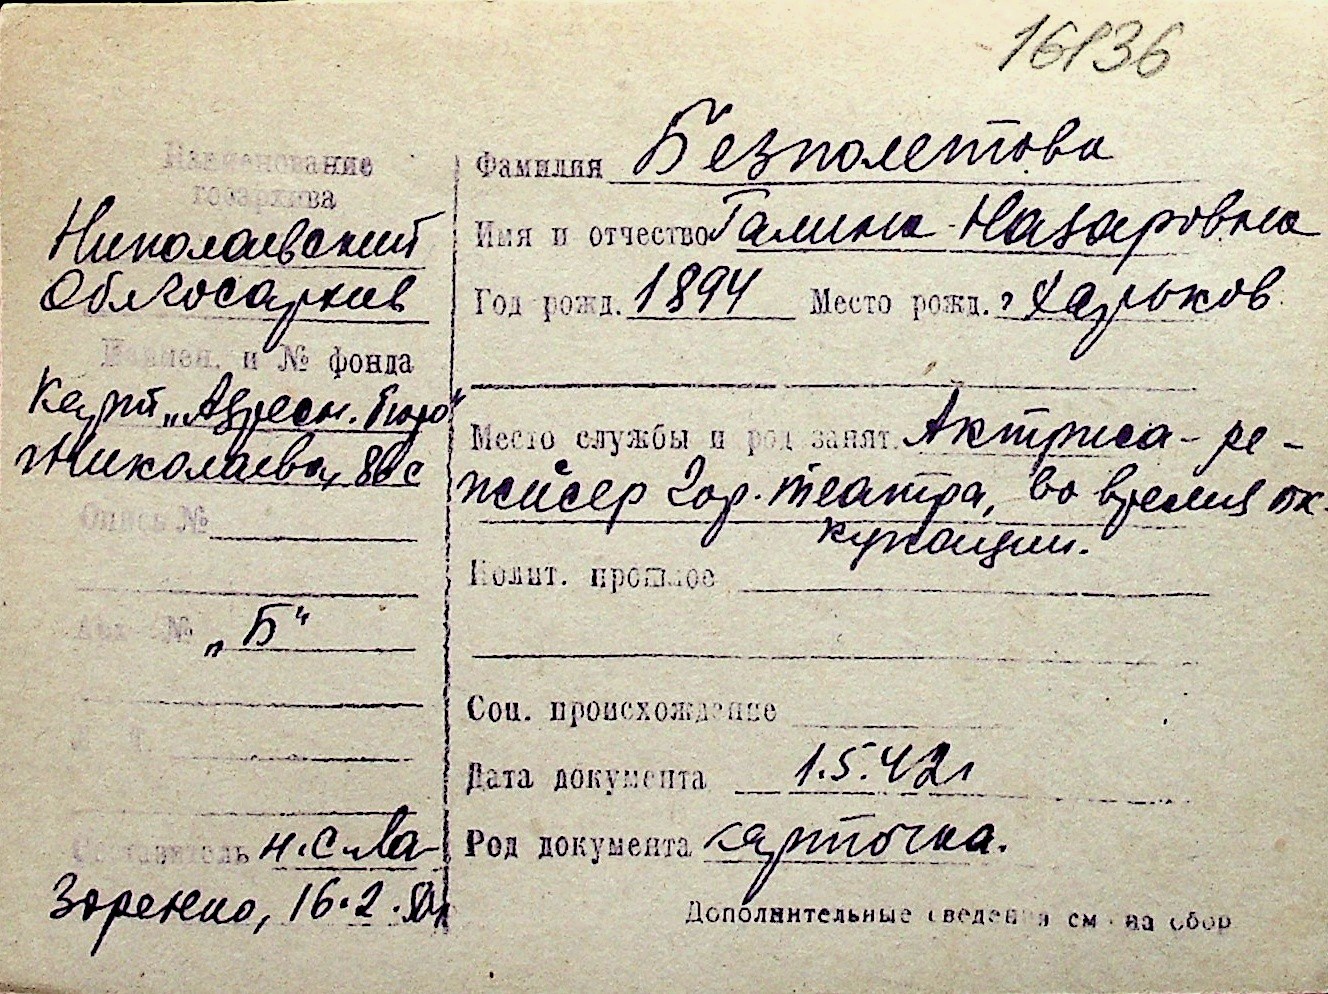 16136
Наименование
госархива
Николаевский
Облгосархив
Наимен. и № фонда
Карт „Адресн. бюро“
г. Николаева,
Опись №
№ „Б“
Составитель н.с. Ла-
Зоренко, 16.2.
Фамилия Безполетова
Имя и отчество Галина Назаровна
Год рожд. 1894 Место рожд. г Харьков
Место службы и род занят. Актриса-ре-
жисер Гор. театра, во время ок-
купации.
Полит. прошлое
Соц. происхождение
Дата документа 1.5.42г
Род документа карточка.
Дополнительные сведения см. на обор